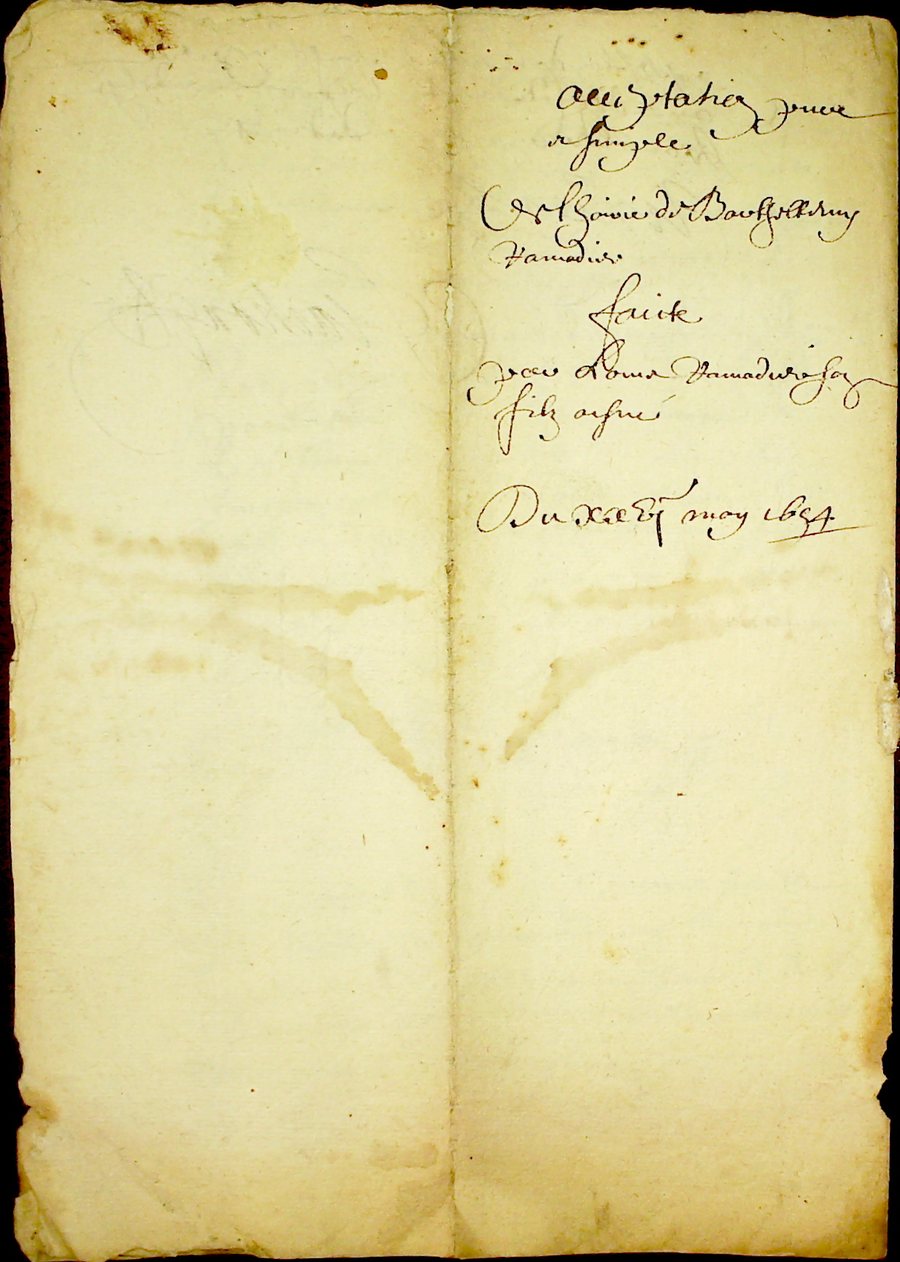 acceptation pure
et simple
De lhoirie de Barthellemy
Ramadier
faicte
par Louis Ramadier son
filz aisné
Du xxvj may 1654